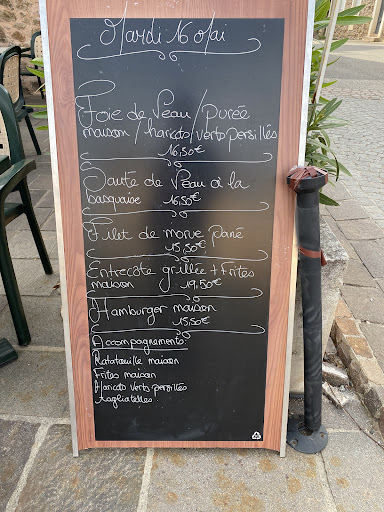 Mardi 16 Mai
Foie de Veau / purée
maison / haricots verts persillés
16,50€
Sauté de Veau à la
basquaise 16,50€
Filet de morue pané
15,50€
Entrecote grillée + Frites
maison 19,50€
Hamburger maison
15,50€
Accompagnements
Ratatouille maison
Frites maison
Haricots verts persillés
Tagliatelles